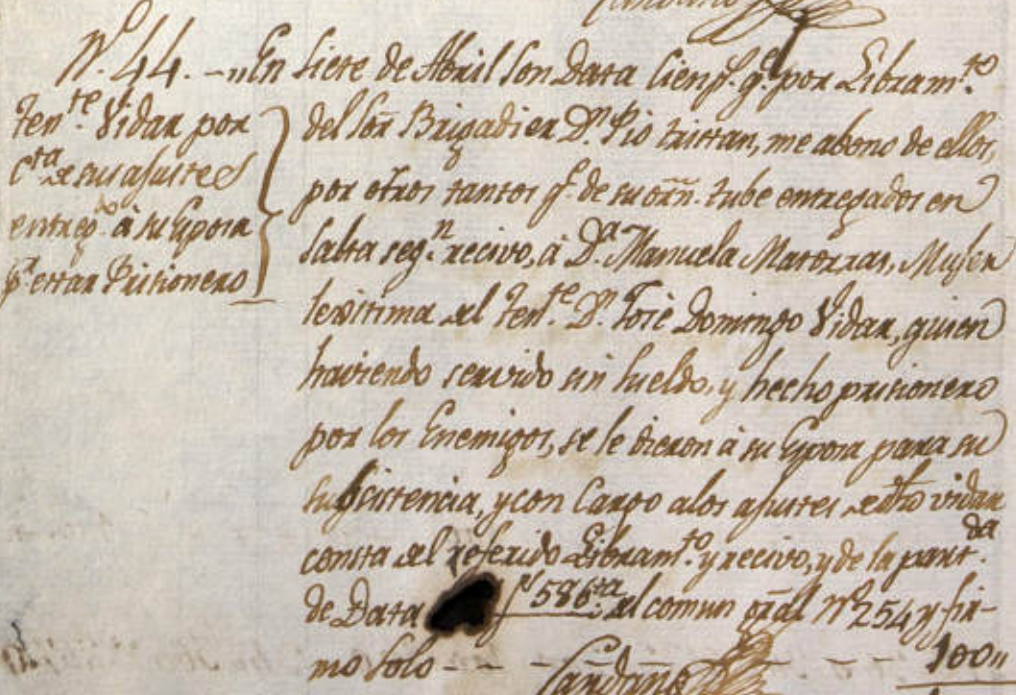 Nº. 44.
Ten.te Vidar por
c.ta de sus ajustes
entreg.do à su Esposa
p.r estar Prisionero
En siete de Abril son Data Cien p.s q.e por Libram.to
del Sor. Brigadier D.n Pio tristan, me abono de ellos,
por otros tantos q.e de su orn. tube entregados en
Salta seg.n recivo, à D.a Manuela Matorras, Mujer
lexitima del Ten.te D.n José Domingo Vidar, quien
haviendo servido sin sueldo, y hecho prisionero
por los Enemigos, se le dieron à su Esposa para su
subsistencia, y con Cargo a los ajustes de dho vidar
consta del referido Libram.to y recivo, y de la part.da
de Data f.s 586 ta. del comun gral Nº 254 y fir-
mo solo - - - Candano - - 100„